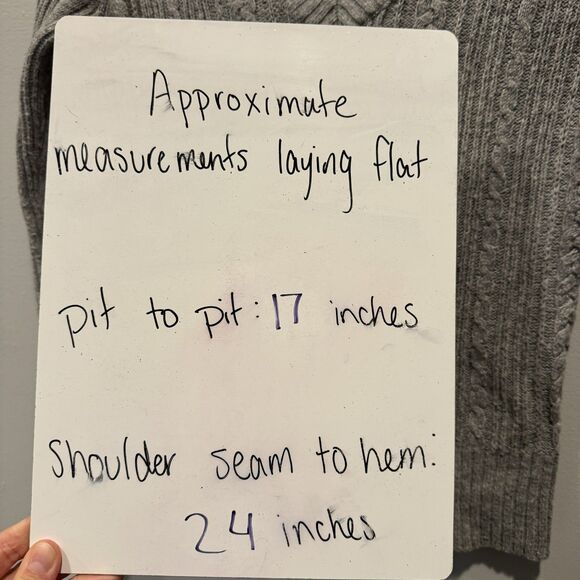 Approximate
measurements laying flat
pit to pit: 17 inches
Shoulder seam to hem:
24 inches